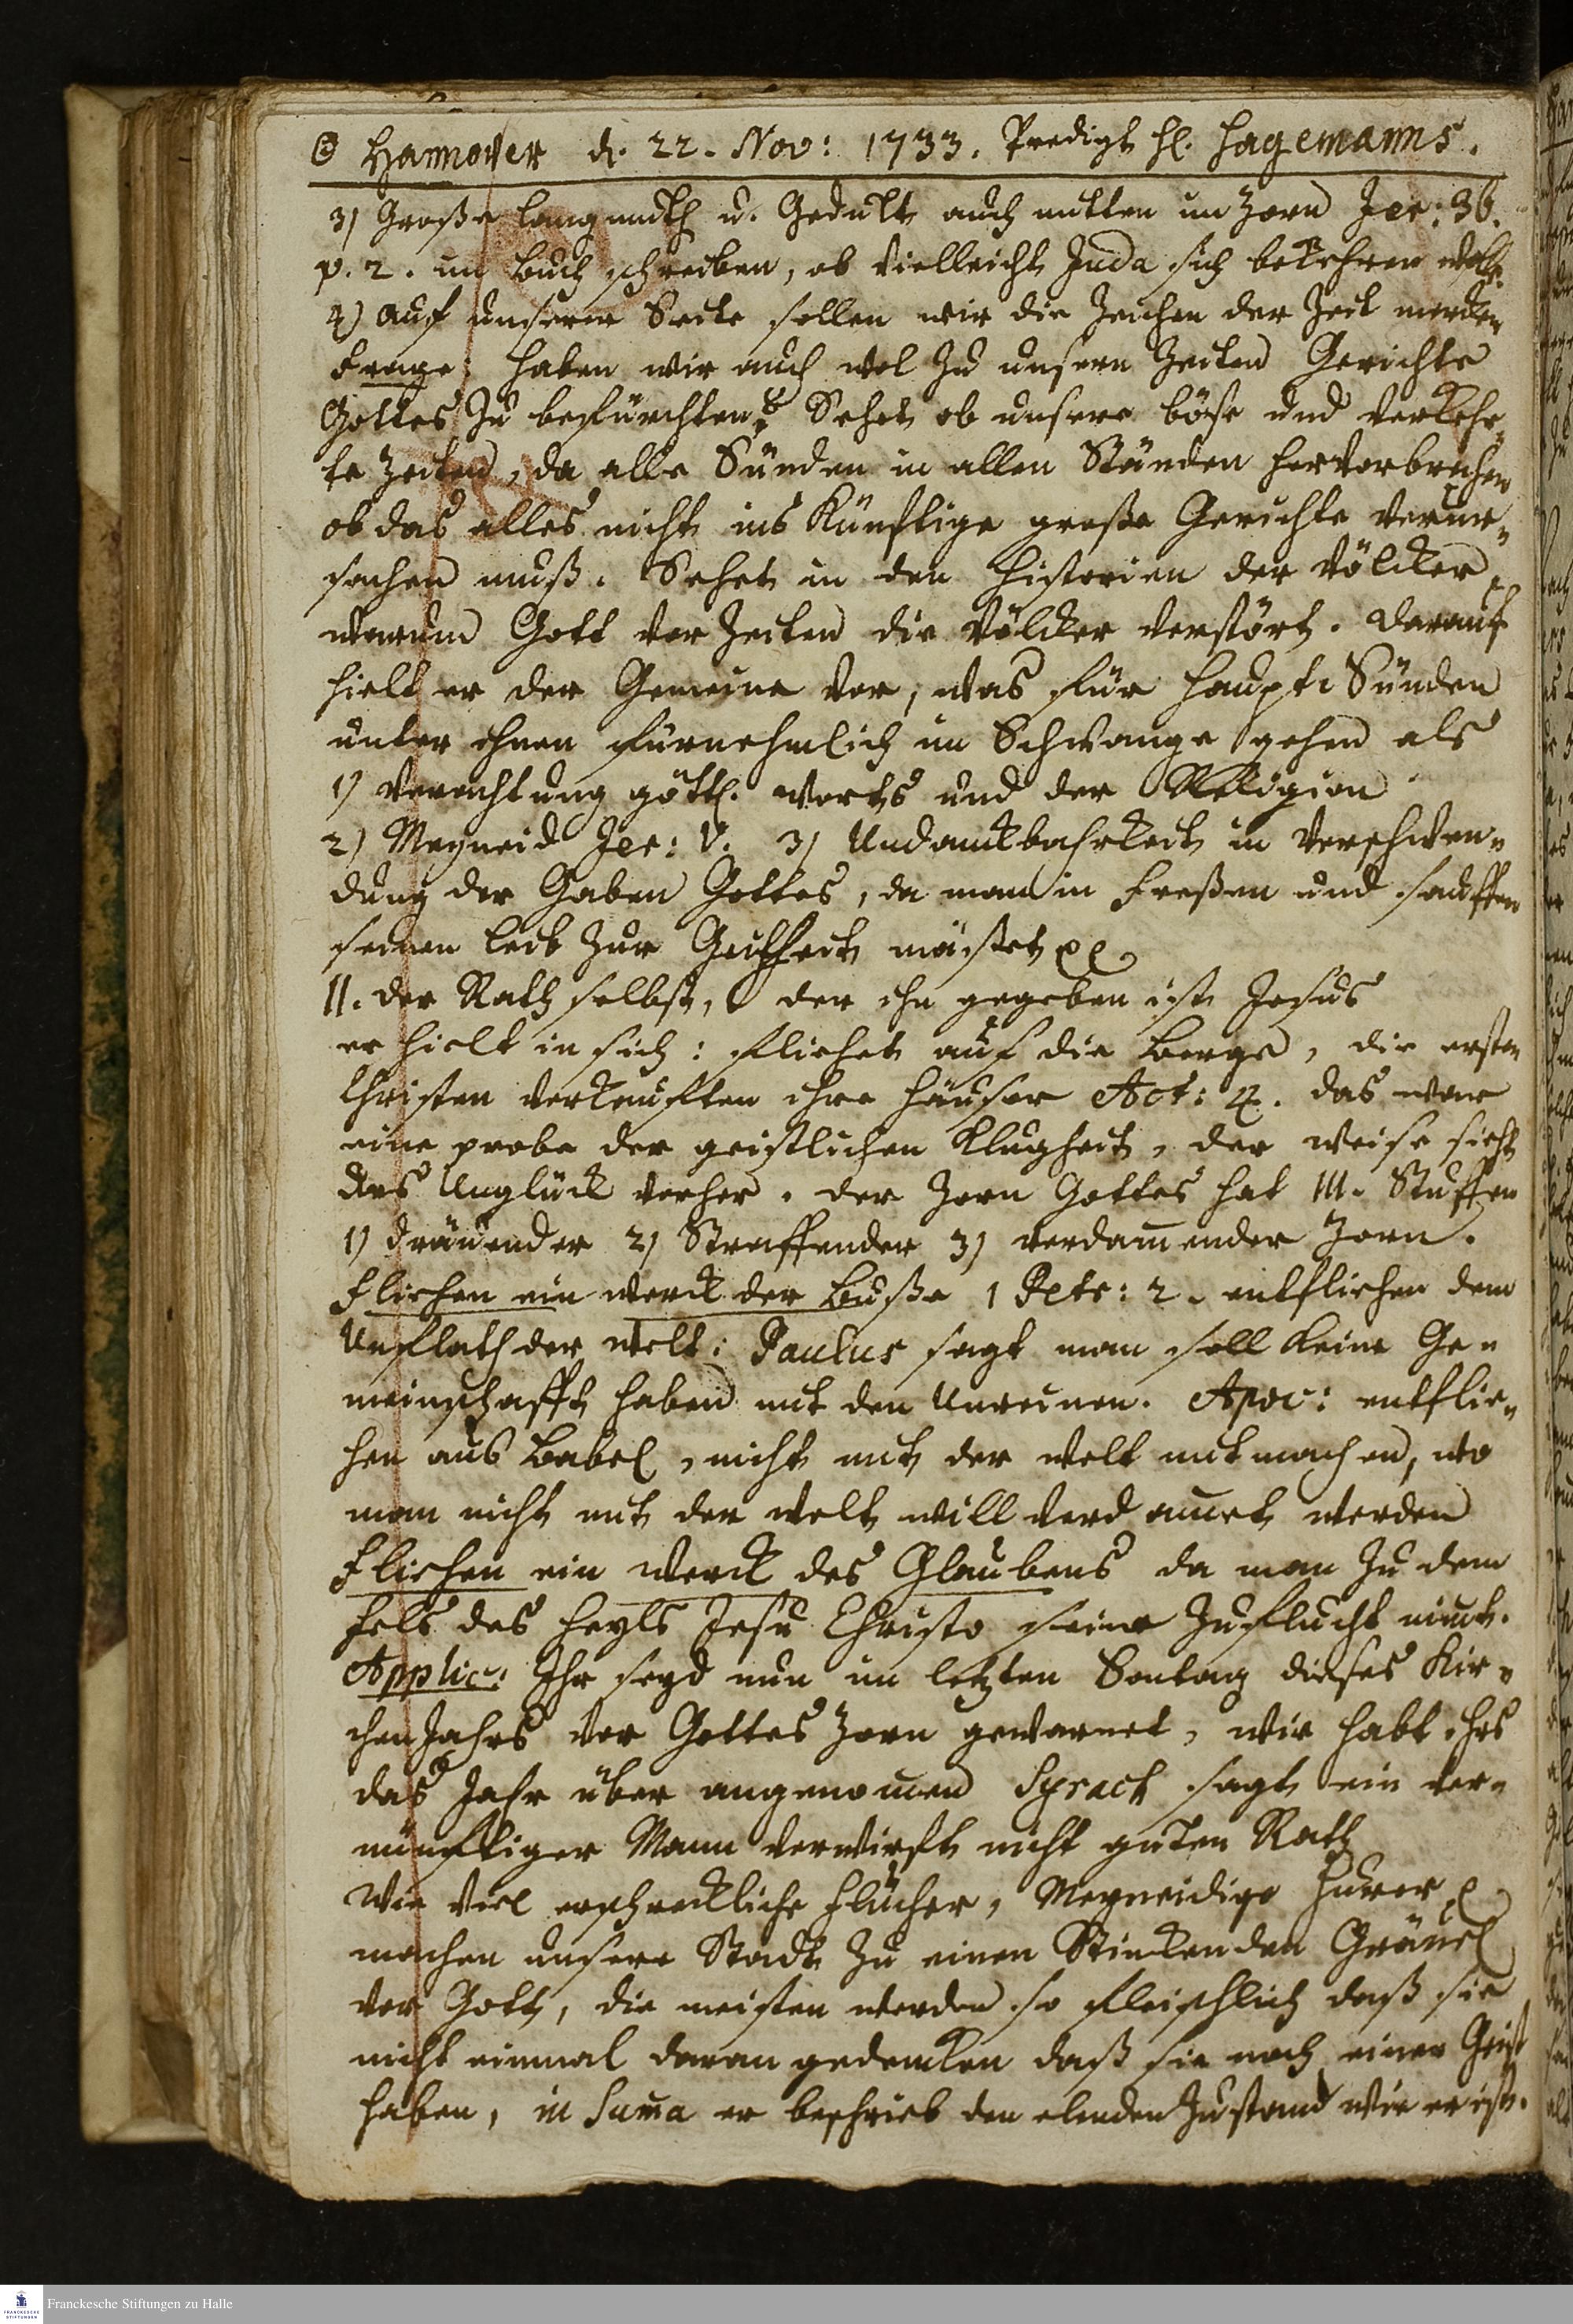 ☉ Hannover d. 22. Nov: 1733. Predigt H. Hagemanns.
3) Große langmuth u. Gedult auch mitten im Zorn Jer: 36.
v. 2. im Buch schreiben, ob vielleicht Juda sich bekehren wolle
4) auf unserer Seite sollen wir die Zeichen der Zeit mercken
Frage: haben wir auch wol zu unsern Zeiten Gerichte
Gottes zu befürchten? Sehet ob unsere böse und verkehr-
te Zeiten, da alle Sünden in allen Ständen hervorbrechen
ob das alles nicht ins Künftige große Gerichte verur-
sachen muß. Sehet in den Historien der Völcker,
warum Gott vor Zeiten die Völcker verstört. Darauf
hielt er der Gemeine vor, was für haupt Sünden
unter ihnen fürnehmlich im Schwange gehen als
1) Verachtung göttl. Worts und der Religion
2) Meyneid Jer: V. 3) Undanckbahrkeit in Verschwen-
dung der Gaben Gottes, da man in Freßen und sauffen
seinen leib zur Geilheit mästet
II. der Rath selbst, der ihn gegeben ist Jesus
er hielt in sich: fliehet auf die Berge, die ersten
Christen verkaufften ihre häuser Act: 4. das war
eine probe der geistlichen Klugheit, der Weise sieht
das Unglück vorher. der Zorn Gottes hat III. Stuffen
1) dräuender 2) Straffender 3) verdam̅ender Zorn.
Fliehen ein werck der Buße 1 Petr: 2. entfliehen dem
Unflath der welt: Paulus sagt man soll keine Ge-
meinschafft haben mit den Unreinen. Apoc: entflie-
hen aus Babel, nicht mit der welt mitmachen, wo
man nicht mit der welt will verdam̅et werden
Fliehen ein Werck des Glaubens da man zu dem
Fels des Heyls Jesu Christo seine Zuflucht nim̅t.
Applic: Ihr seyd nun im letzten Sontag dieses Kir-
chenJahrs vor Gottes Zorn gewarnet, wie habt ihrs
das Jahr über angenom̅en Syrach sagt ein ver-
nünfftiger Mann verwirft nicht guten Rath
Wie viel erschreckliche Flücher, Meyneidige Hurer
machen unsere Stadt zu einen Stinckenden Gräuel
vor Gott, die meisten werden so fleischlich daß sie
nicht einmal daran gedencken daß sie noch einen Geist
haben, in Sum̅a er beschrieb den elenden Zustand wie er ist.
Franckesche Stiftungen zu Halle